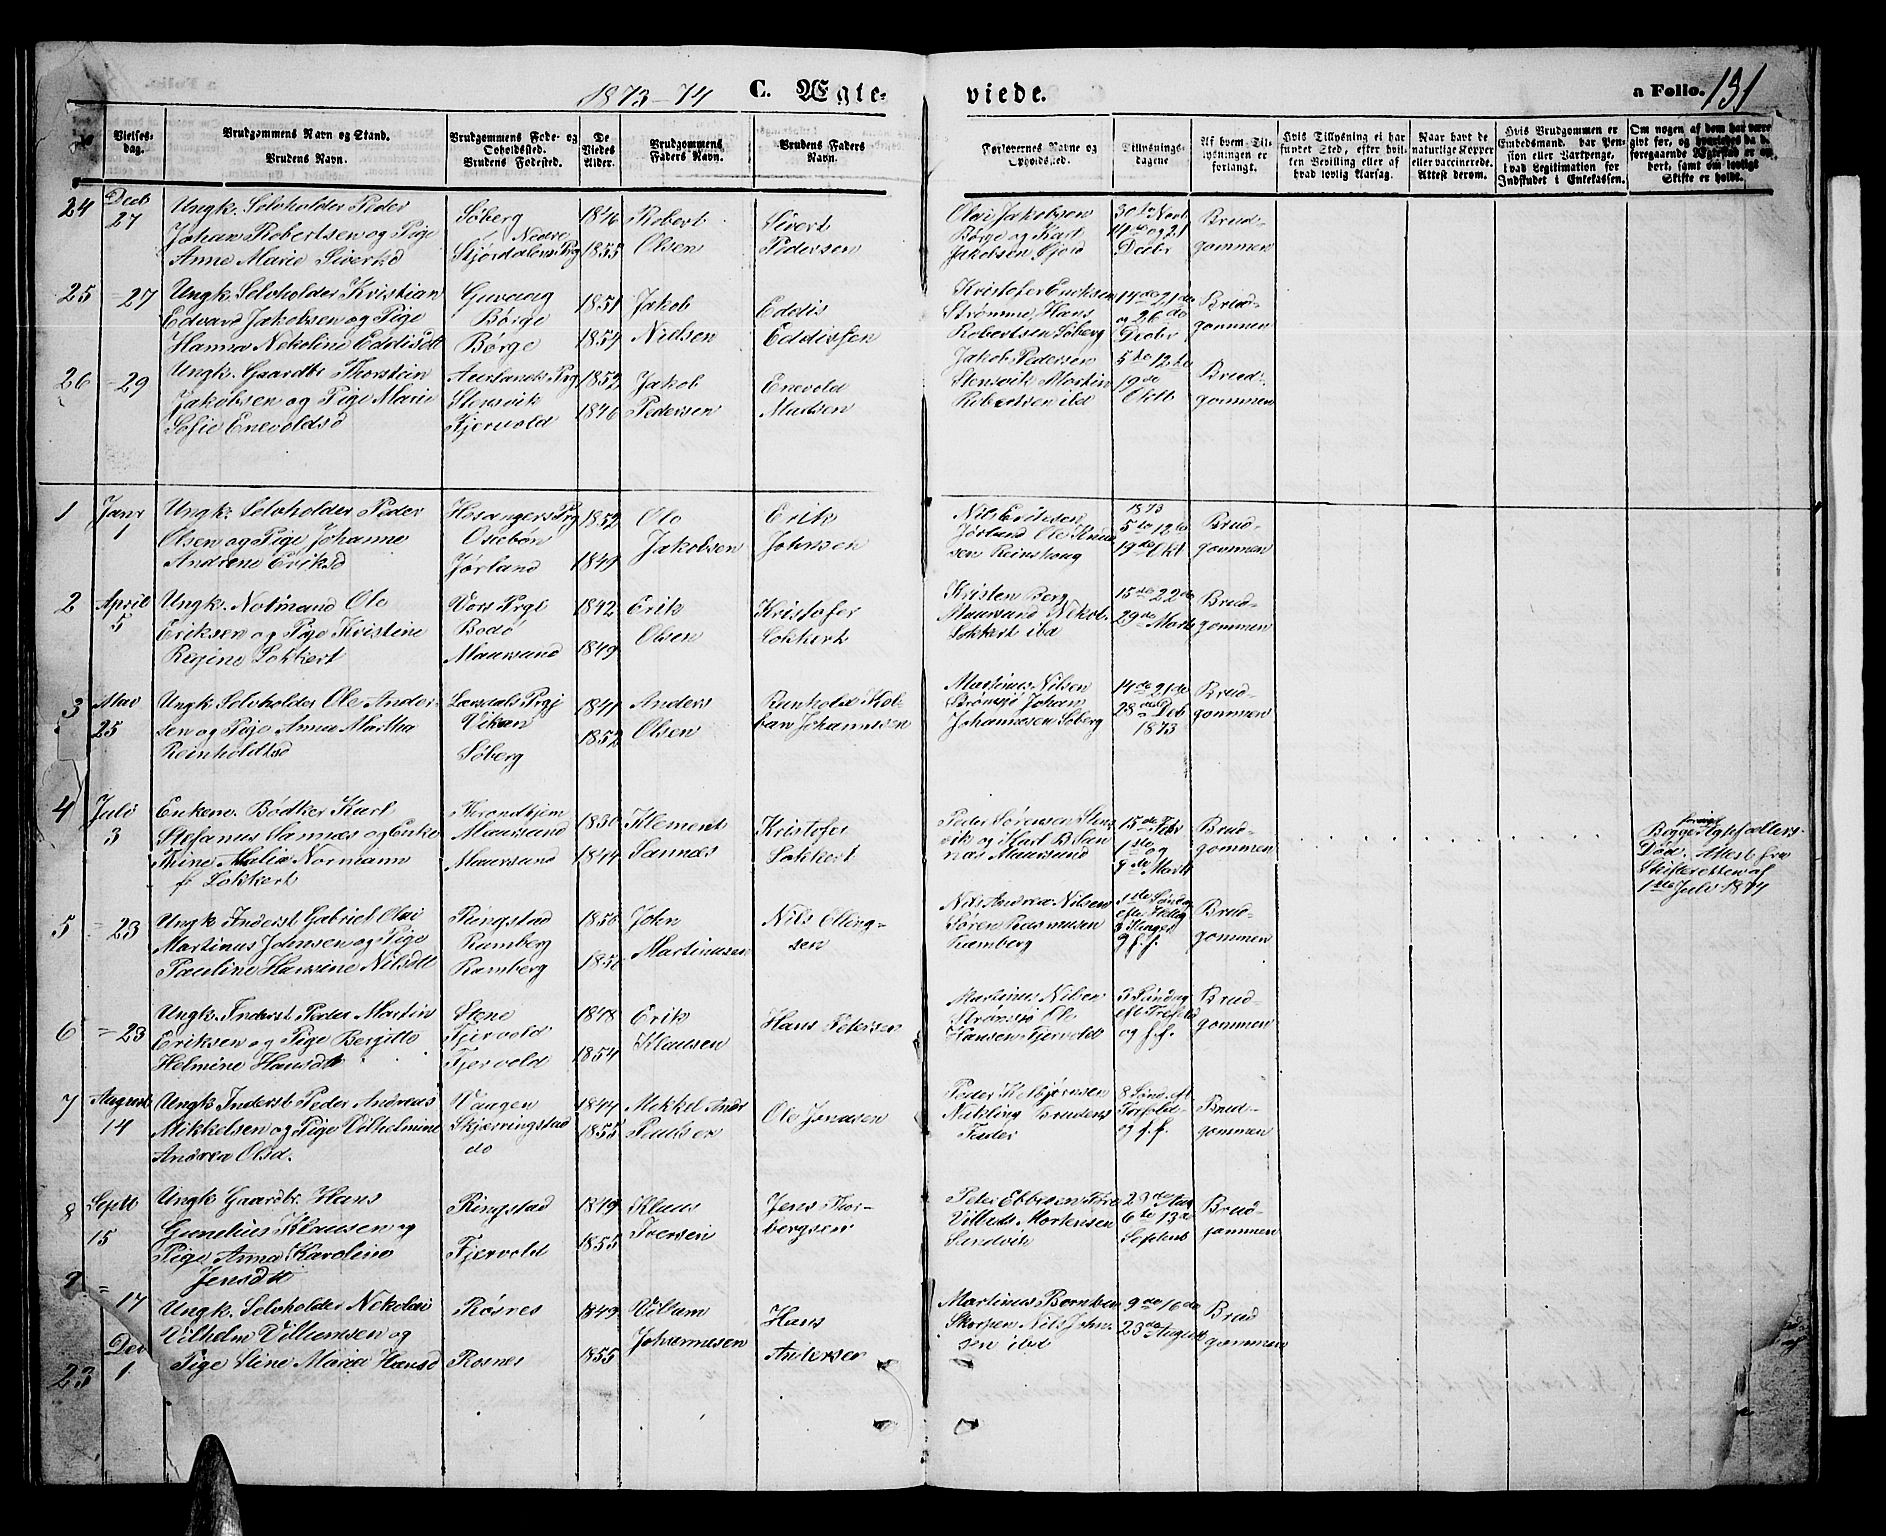 1873-74 C. Ægte- viede. a Folio. 131
№
Vielses-
dag.
Brudgommens Navn og Stand.
Brudens Navn.
Brudgommens Føde- og
Opholdssted.
Brudens Fødested.
De
Viedes
Alder.
Brudgommens
Faders Navn.
Brudens Faders
Navn.
Forlovernes Navne og
Opholdssted.
Tillysnings-
dagene
Af hvem Til-
lysningen er
forlangt.
Hvis Tillysning ei har
fundet Sted, efter hvil-
ken Bevilling eller af
hvad lovlig Aarsag.
Naar havt de
naturlige Kopper
eller vaccinerede.
Attest derom.
Hvis Brudgommen er
Embedsmand, har Pen-
sion eller Vartpenge,
hvad Legitimation for
Indskudet i Enkekassen.
Om nogen af dem har være
givt før, og
foregaaende Ægtestab er
samt om lovligt
Skifte er holdt.
24
Decb
27
Ungk. Selvholder Peder
Johan Robertsen og Pige
Anne Marie Sivertsd
Søberg
Nedre
Stjordalens Prg
1846
1855
Robert
Olsen
Sivert
Pedersen
Olai Jakobsen
Børge og Karl
Jakobsen Gjord
30te Novb
14de og 21
Decbr
Brud-
gommen
25
- 27
Ungk. Selvholder Kristian
Edvard Jakobsen og Pige
Hanna Nekoline Eddisdtt
Guvaag
Børge
Børge
1851
1854
Jakob
Nielsen
Eddis
Eddissen
Kristofer Eriksen
Strømme, Hans
Robertsen Søberg
14de 21de
og 26de
Decbr
Brud-
gommen
26
- 29
Ungk. Gaardbr Thorstein
Jakobsen og Pige Marie
Sofie Enevoldsd
Aurlands Prg
Stensvik
Fjervold
1852
1846
Jakob
Pedersen
Enevold
Madsen
Jakob Pedersen
Stensvik Martin
Robertsen ibd
5te 12te
19de
Oktb
Brud-
gommen
1
Janr
1
Ungk. Selvholder Peder
Olsen og Pige Johanne
Andrine Eriksd
Hosangers Prg
Ostebøn
Jørland
1852
1849
Ole
Jakobsen
Erik
Johnsen
Nils Eriksen
Jørland Ole
sen Reinshaug
1873
5te 12te
19de Okt
Brud-
gommen
2
April
5
Ungk. Notmand Ole
Eriksen og Pige Kristine
Regine Lokkert
Vors Prgl
Bodø
Maursund
1842
1849
Erik
Olsen
Kristofer
Lokkert
Kristen Berg
Maursund Nekol.
Lokkert ibd
15de 22de
29de Marts
Brud-
gommen
3
Mai
25
Ungk. Selvholder Ole Ander-
sen og Pige Anne Martha
Reinholdtsd
Laerdals Prgj
Vikan
Søberg
1841
1852
Anders
Olsen
Reinhold Kol-
ban Johannesen
Martinus Nilsen
Strømsjø Johan
Johannesen Søberg
14de 21de
28de Deb
1873
Brud-
gommen
4
Juli
3
Enkem. Bødker Karl
Stefanus Sannæs og Enke
Trine Malia Normann
f. Lokkert
Throndhjem
Maursund
Maursund
1830
1844
Klement
Sannæs
Kristofer
Lokkert
Peder Sørensen Stens-
vik og Karl B San-
næs Maursund
15de Febr
1ste og
8de Marts
Brud-
gommen
forrige
Begges Ægtefællers
Død. Attest fra
Skifteretten af
1ste Juli 1874
5
= 23
Ungk Inderst Gabriel Olai
Martinus Johnsen og Pige
Pauline Hansine Nilsdtt
Ringstad
Ramberg
Ramberg
1850
1850
John
Martinusen
Nils Elling-
sen
Nils Andrea Nilsen
Søren Rasmusen
Ramberg
1ste Søndag
efter Hellig
3 Konger
og f.f.
Brud-
gommen
6
= 23
Ungk. Inderst Peder Martin
Eriksen og Pige Bergitte
Helmine Hansdtt
Stene
Fjervold
Fjervold
1848
1854
Erik
Klausen
Hans Petersen
Martinus Nilsen
Strømsjø Ole
Hansen Fjervold
3 Søndag
eft Trefold
og f.f.
Brud-
gommen
7
August
14
Ungk Inderst Peder Andreas
Mikkelsen og Pige Vilhelmine
Andrea Olsd.
Vaagen
Skjerringstad
do
1844
1855
Mekkel Andr
Pedersen
Ole Jonasen
Peder K Asbjørnsen
Natsling Brudens
Fader
8 Sønd. eft
Trefold-
og f.f.
Brud-
gommen
8
Septb
15
Ungk Gaardbr. Hans
Gunelius Klausen og
Pige Anna Karoline
Jensdtt
Ringstad
Fjervold
1849
1855
Klaus
Iversen
Jens Thor-
bergsen
Peter Ebbesen
Mortensen
Sandvik
23de Aug
6te 13de
Septemb
Brud-
gommen
9
= 17
Ungk. Selvholder Nekolai
Vilhelm Villumsen og
Pige Stine Maria Hansd
Røsnes
Rosnes
1849
1855
Villum
Johannesen
Hans
Andersen
Martinus Berntsen
Skorpen Nils John-
sen ibd
9de 16de
23de August
Brud
gommen
Dec
23
1